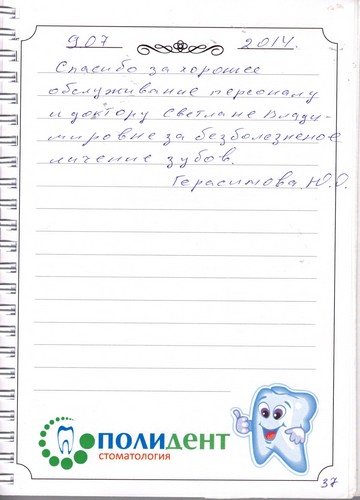 9.07 2014
Спасибо за хорошее
обслуживание персоналу
и доктору Светлане Влади-
мировне за безболезненое
личение зубов.
Герасимова Ю.О.
ПОЛИДЕНТ
СТОМАТОЛОГИЯ
37